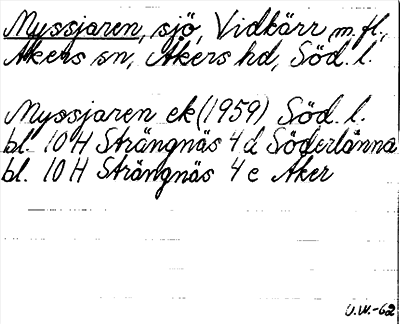 Myssjaren, sjö, Vidkärr m.fl.,
Åkers sn, Åkers hd, Söd. l.
Myssjaren ek (1959) Söd. l.
bl. 10 H Strängnäs 4 d Söderlänna
bl. 10 H Strängnäs 4 e Åker
U.W.-62